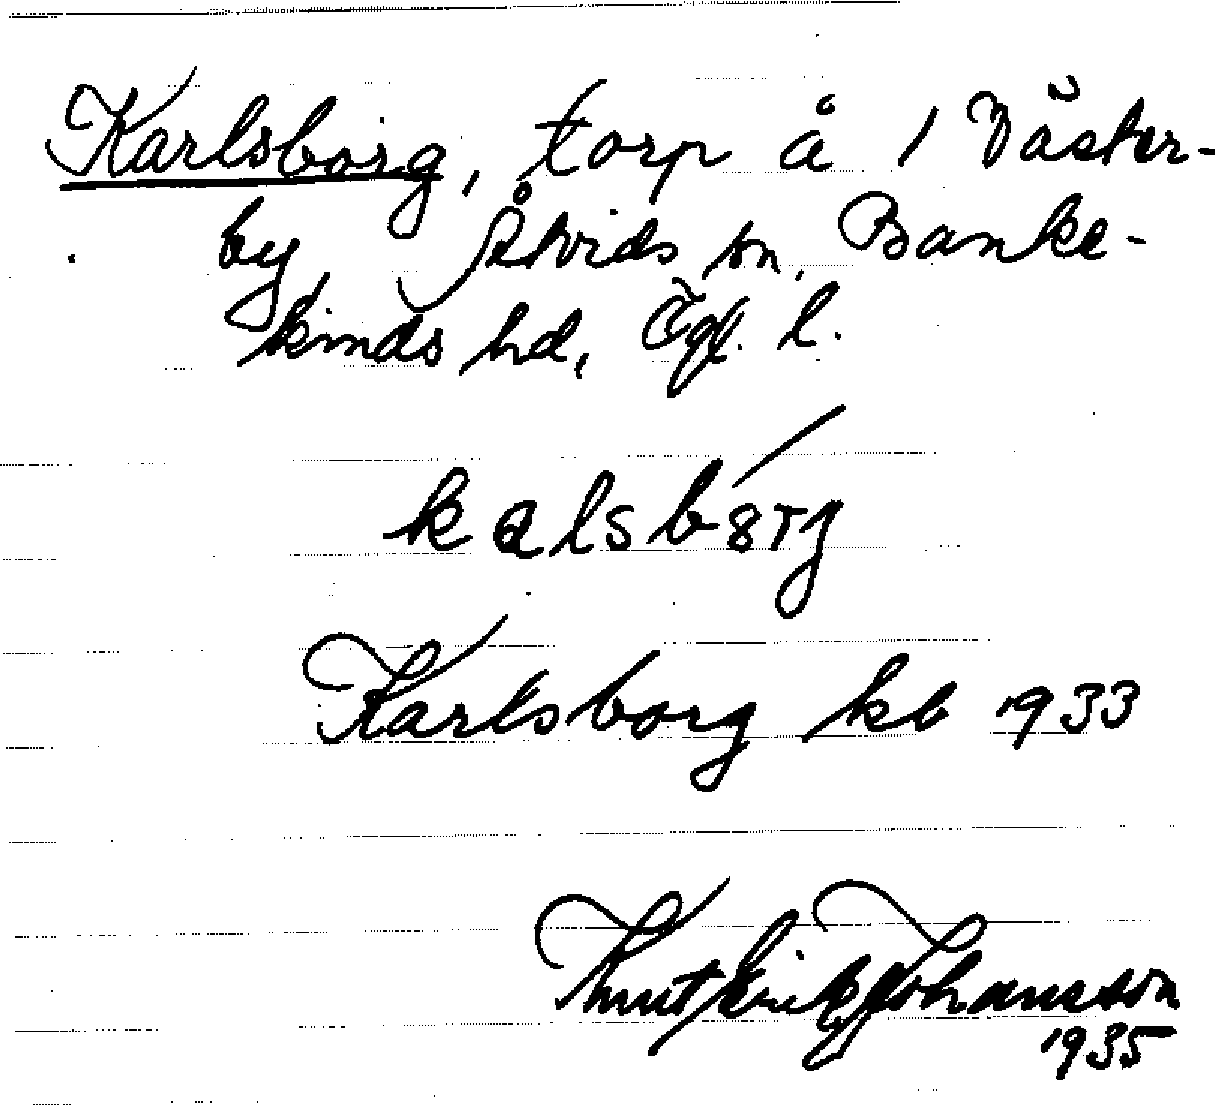 Karlsborg, torp å 1 Väster-
by Åtvids sn, Banke-
kinds hd, Ögl. l.
kalsbɷrg
Karlsborg kb 1933
Knut Erik Johansson
1935